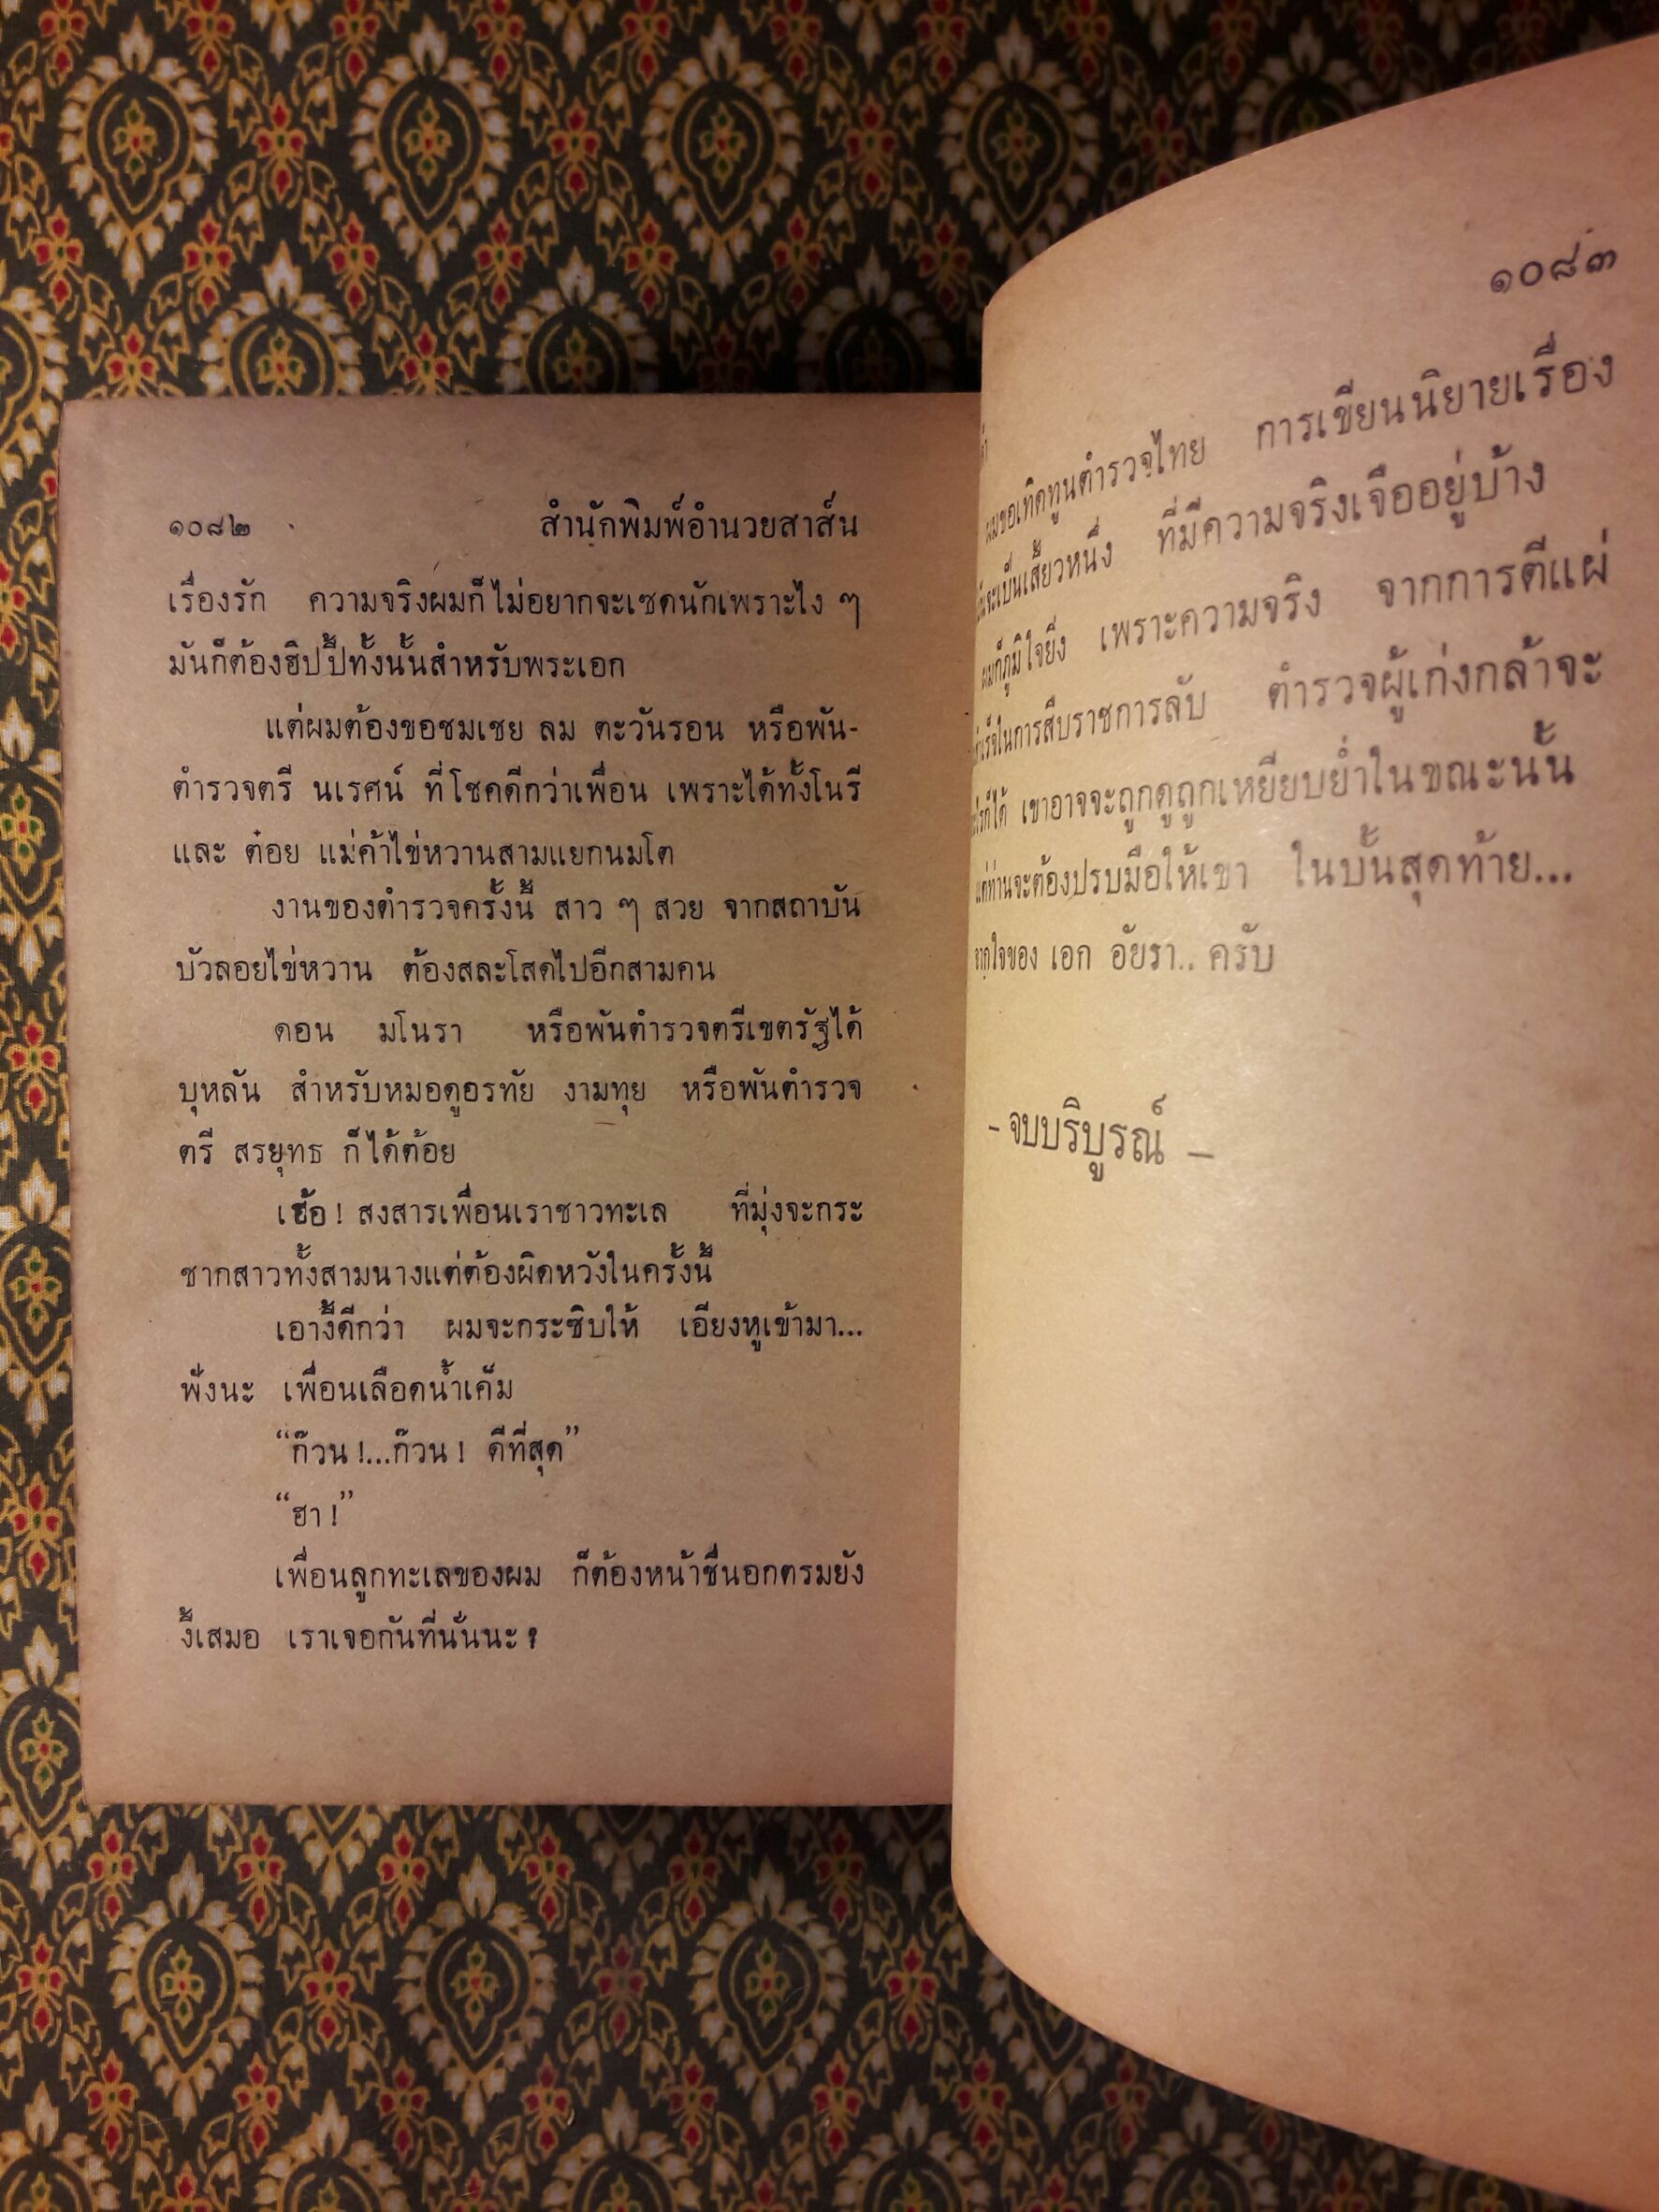 ๑๐๘๒ สำนักพิมพ์อำนวยสาส์น
เรื่องรัก ความจริงผมก็ไม่อยากจะเซดนักเพราะไง ๆ
มันก็ต้องฮิปปี้ทั้งนั้นสำหรับพระเอก
แต่ผมต้องขอชมเชย ลม ตะวันรอน หรือพัน-
ตำรวจตรี นเรศน์ ที่โชคดีกว่าเพื่อน เพราะได้ทั้งโนรี
และ ต๋อย แม่ค้าไข่หวานสามแยกนมโต
งานของตำรวจครั้งนี้ สาว ๆ สวย จากสถาบัน
บัวลอยไข่หวาน ต้องสละโสดไปอีกสามคน
ดอน มโนรา หรือพันตำรวจตรีเขตรัฐได้
บุหลัน สำหรับหมอดูอรทัย งามทุย หรือพันตำรวจ
ตรี สรยุทธ ก็ได้ต้อย
เฮ้อ! สงสารเพื่อนเราชาวทะเล ที่มุ่งจะกระ
ชากสาวทั้งสามนางแต่ต้องผิดหวังในครั้งนี้
เอางี้ดีกว่า ผมจะกระซิบให้ เอียงหูเข้ามา...
ฟังนะ เพื่อนเลือดน้ำเค็ม
“ก๊วน!...ก๊วน! ดีที่สุด”
“ฮา!”
เพื่อนลูกทะเลของผม ก็ต้องหน้าชื่นอกตรมยัง
งี้เสมอ เราเจอกันที่นั่นนะ!
๑๐๘๓
ผมขอเทิดทูนตำรวจไทย การเขียนนิยายเรื่อง
จะเป็นเสี้ยวหนึ่ง ที่มีความจริงเจืออยู่บ้าง
ผมก็ภูมิใจยิ่ง เพราะความจริง จากการตีแผ่
ในการสืบราชการลับ ตำรวจผู้เก่งกล้าจะ
ก็ได้ เขาอาจจะถูกดูถูกเหยียบย่ำในขณะนั้น
แต่ท่านจะต้องปรบมือให้เขา ในบั้นสุดท้าย...
จากใจของ เอก อัยรา.. ครับ
- จบบริบูรณ์ -